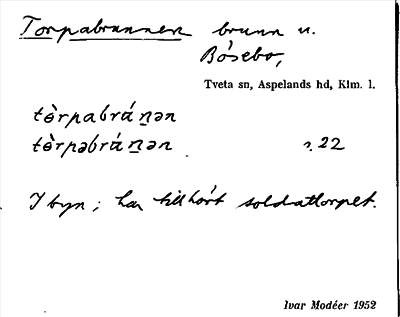 Torpabrunnen brunn u.
Bösebo,
Tveta sn, Aspelands hd, Klm. l.
tèrpabránən
tèrpəbránən s. 22
I byn; har tillhört soldattorpet.
Ivar Modéer 1952